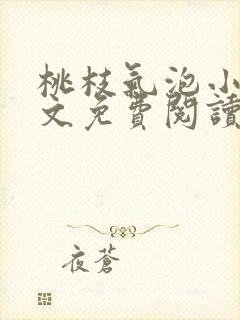 桃枝氣泡小
文免費閱讀
夜蒼